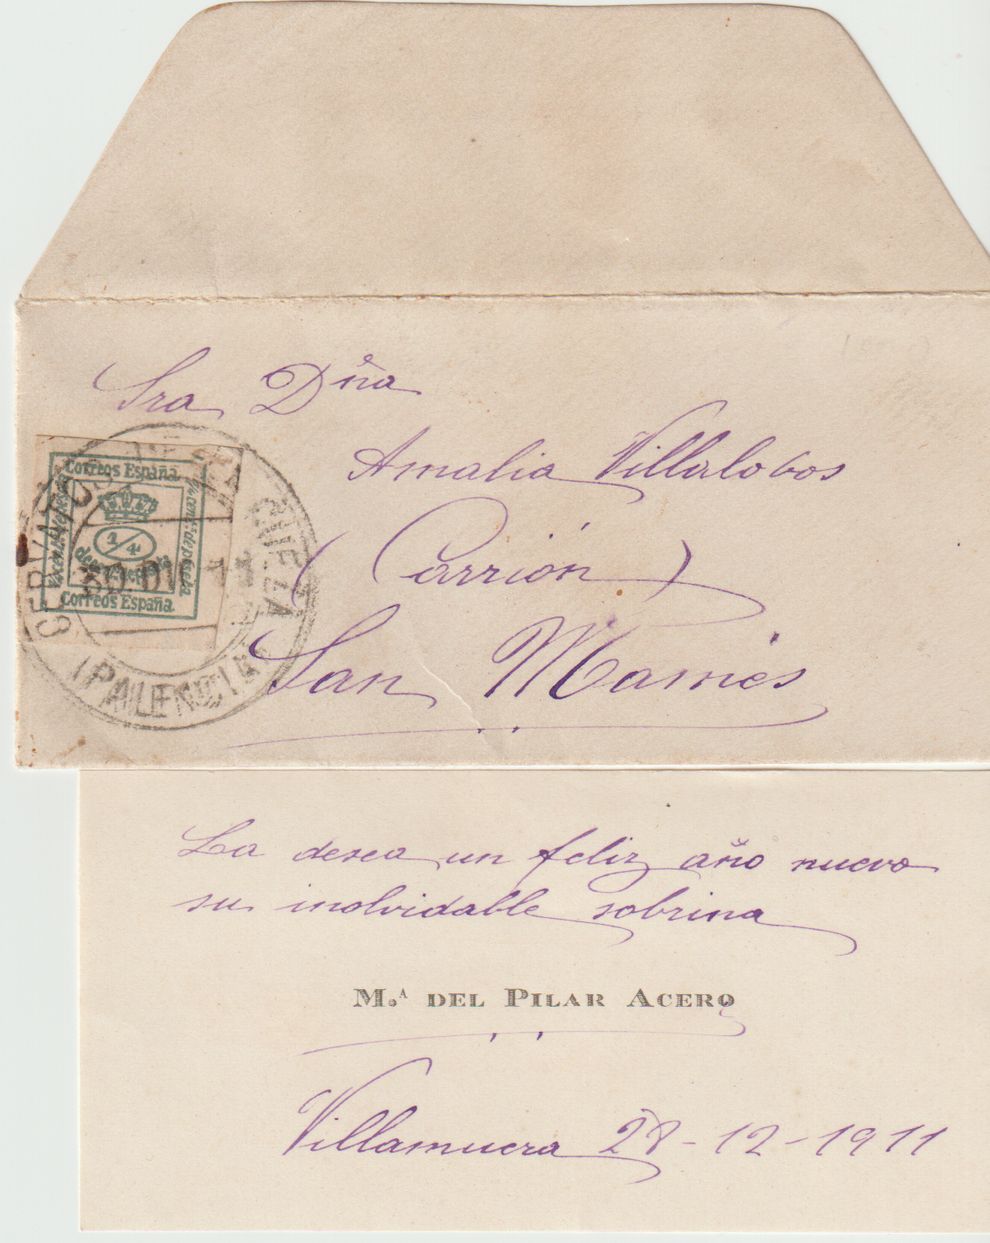 Sra Dña
Amalia Villalobos
(Carrión)
San Mamés
Correos España
1/4
de
Correos España
CERVATOS DE LA CUEZA
30 DIC
(PALENCIA)
La desea un feliz año nuevo
su inolvidable sobrina
M.ª DEL PILAR ACERO
Villamuera 28-12-1911